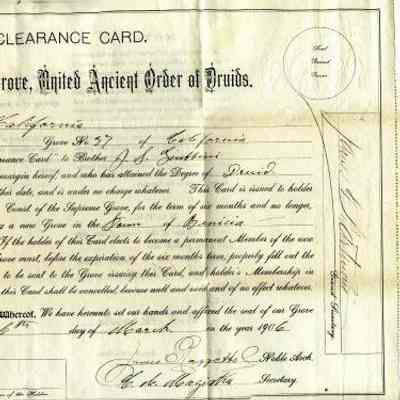 CLEARANCE CARD.
Grove, United Ancient Order of Druids.
Seal
California
Grove No 37 of California
rance Card to Brother J. S.
margin hereof, and who has attained the Degree of Druid
this date, and is under no charge whatever. This Card is issued to holder
Const. of the Supreme Grove, for the term of six months and no longer,
g a new Grove in the Town of Benicia
If the holder of this Card elects to become a permanent Member of the new
rove must, before the expiration of the six months term, properly fill out the
to be sent to the Grove issuing this Card, and holder's Membership in
this Card shall be cancelled, become null and void and of no effect whatever.
Whereof, We have hereunto set our hands and affixed the seal of our Grove
6th day of March in the year 1906
Noble Arch.
Secretary.
Grand Secretary.
of the Holder